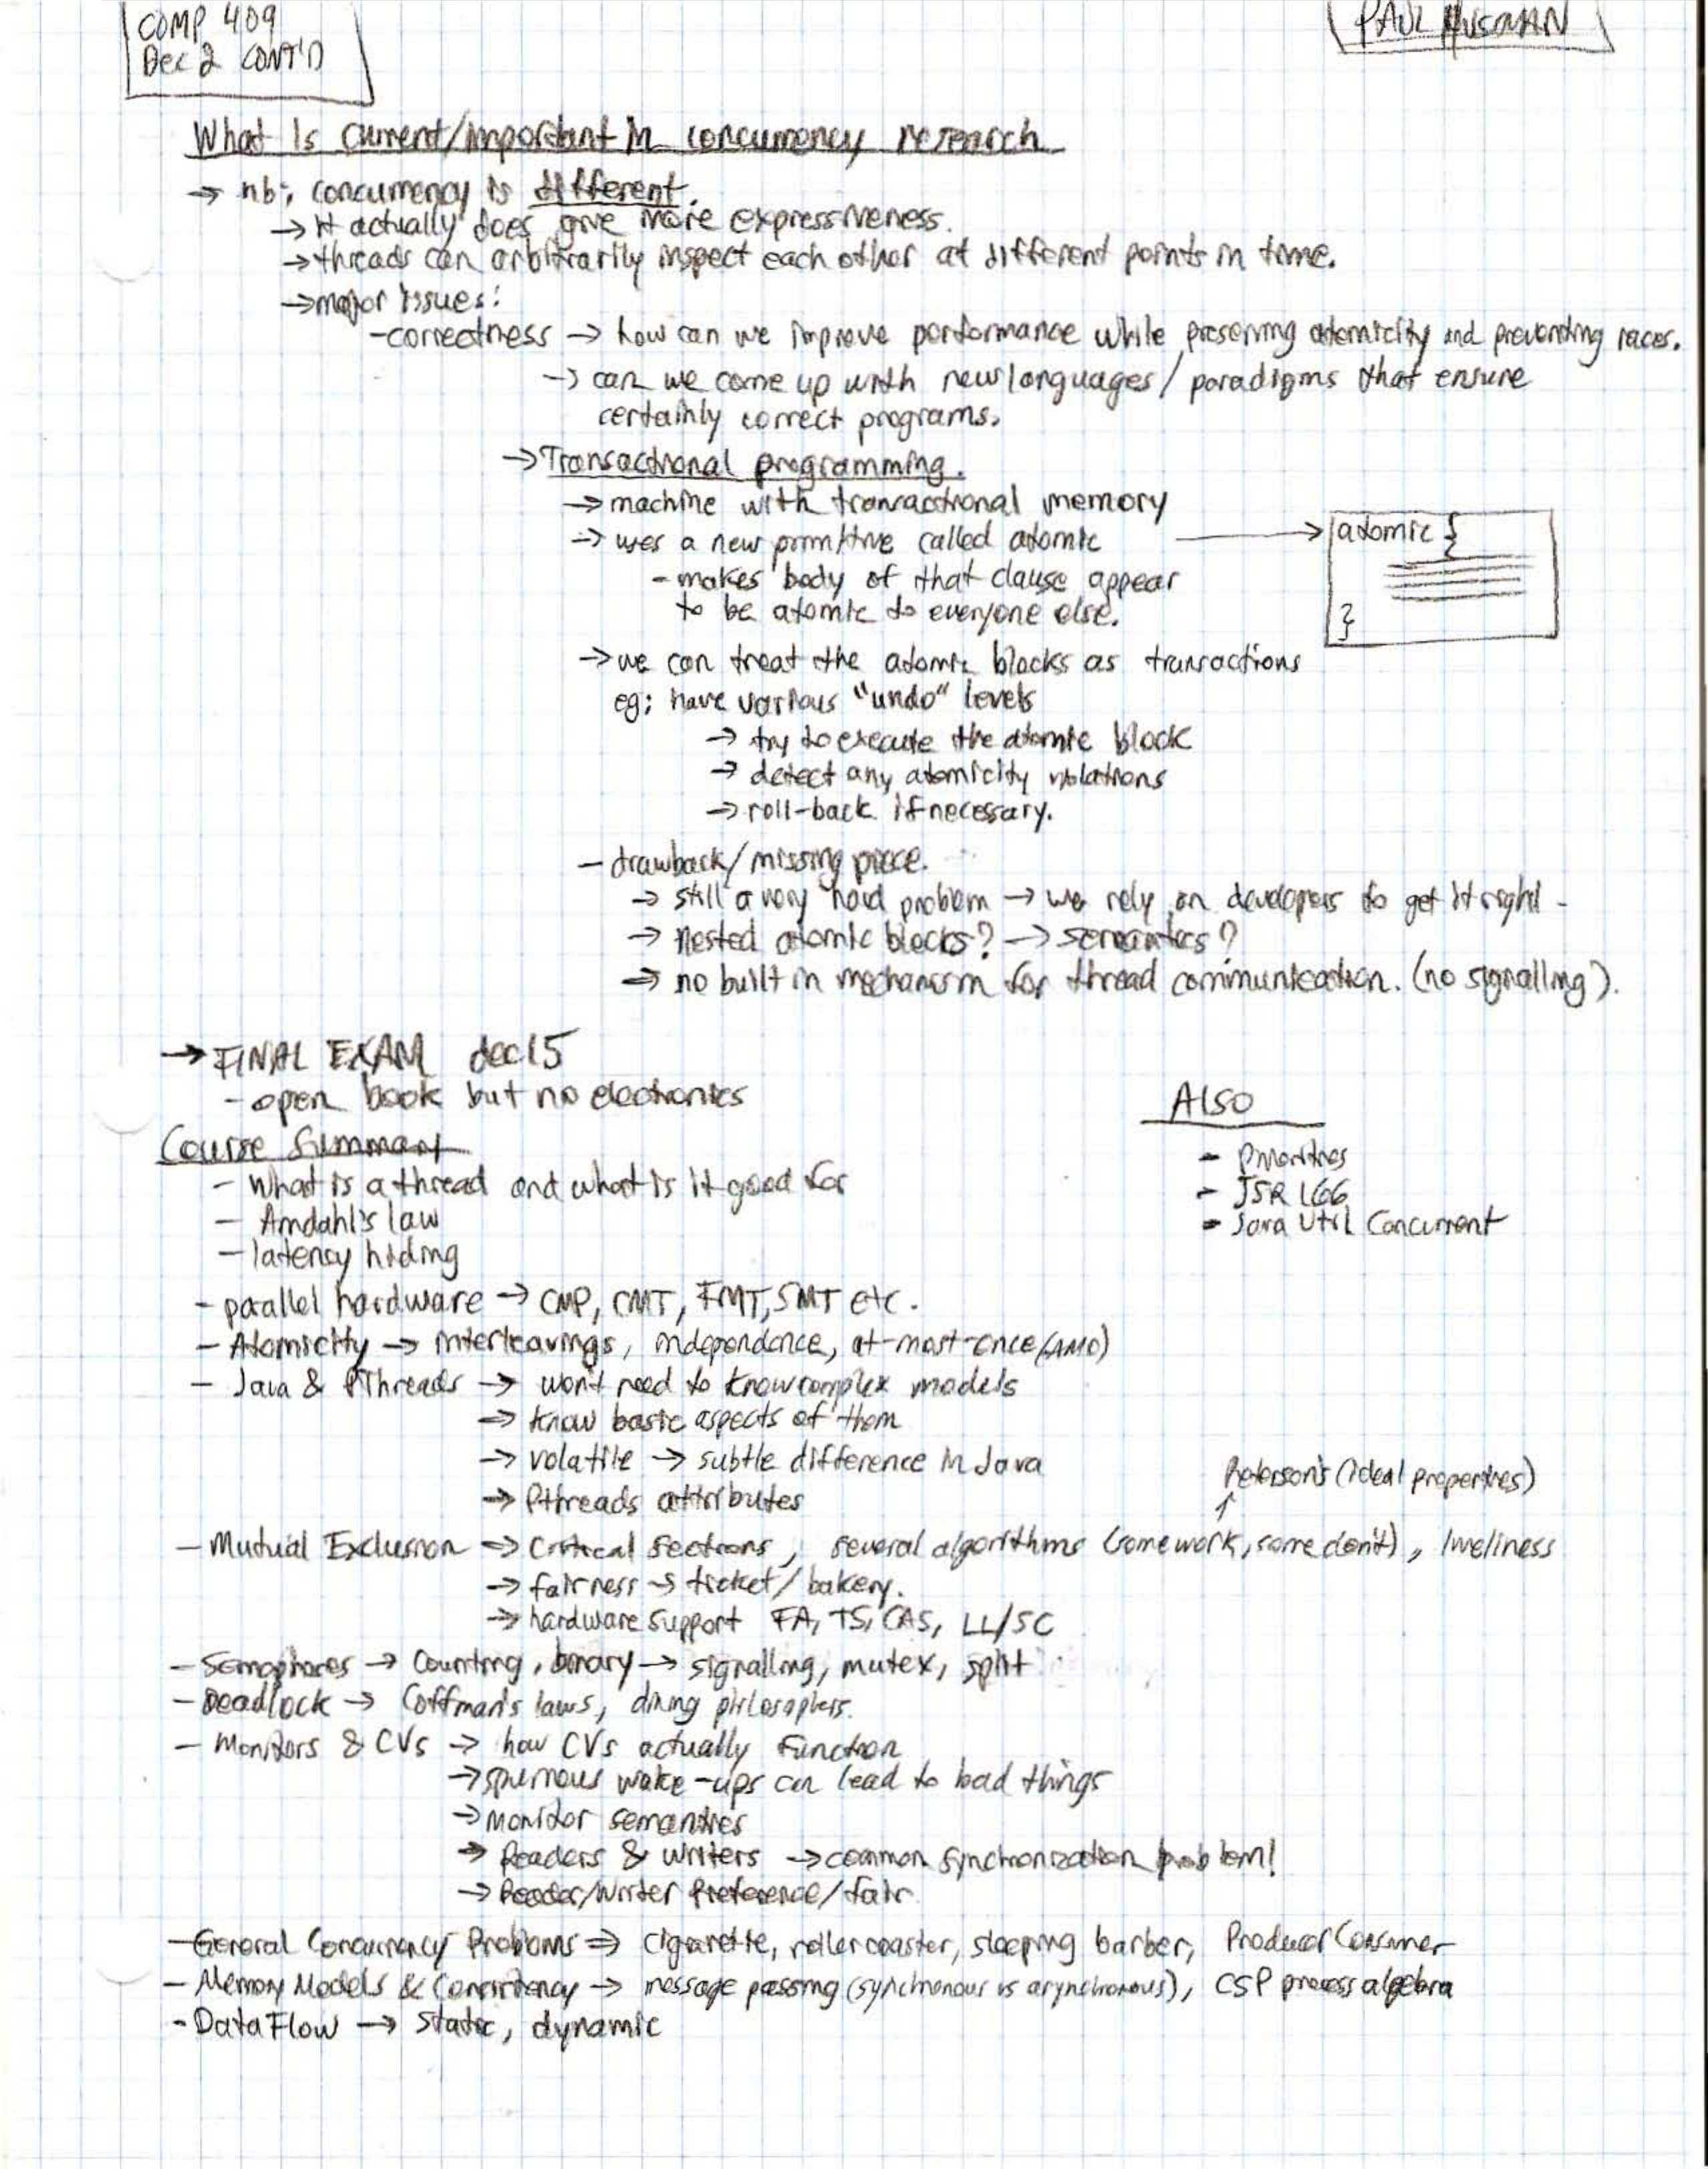 COMP 409
Dec 2 CONT'D
PAUL HUSMAN
What Is current/important in concurrency research
→ nb: concurrency is different.
→ it actually does give more expressiveness.
→ threads can arbitrarily inspect each other at different points in time.
→ major issues:
- correctness → how can we improve performance while preserving atomicity and preventing races.
→ can we come up with new languages/paradigms that ensure
certainly correct programs.
→ Transactional programming.
→ machine with transactional memory
→ uses a new primitive called atomic
→ atomic {
}
- makes body of that clause appear
to be atomic to everyone else.
→ we can treat the atomic blocks as transactions
eg: have various "undo" levels
→ try to execute the atomic block
→ detect any atomicity violations
→ roll-back if necessary.
- drawback/missing piece.
→ still a very hard problem → we rely on developers to get it right -
→ nested atomic blocks? → semantics?
→ no built in mechanism for thread communication. (no signalling).
→ FINAL EXAM dec 15
- open book but no electronics
Course Summary
- What is a thread and what is it good for
- Amdahl's law
- latency hiding
ALSO
- Priorities
- JSR 166
- Java Util Concurrent
- parallel hardware → CMP, CMT, FMT, SMT etc.
- Atomicity → interleavings, independence, at-most-once (AMO)
- Java & PThreads → won't need to know complex models
→ know basic aspects of them
→ volatile → subtle difference in Java
→ Pthreads attributes
Peterson's (ideal properties)
↑
- Mutual Exclusion → Critical Sections, several algorithms (some work, some don't), liveliness
→ fairness → ticket/bakery.
→ hardware support FA, TS, CAS, LL/SC
- Semaphores → Counting, binary → signalling, mutex, split
- Deadlock → Coffman's laws, dining philosophers.
- Monitors & CVs → how CVs actually function
→ spurious wake-ups can lead to bad things
→ monitor semantics
→ Readers & Writers → common synchronization problem!
→ Reader/Writer Preference/fair
- General Concurrency Problems ⇒ cigarette, roller coaster, sleeping barber, Producer Consumer
- Memory Models & Consistency → message passing (synchronous vs asynchronous), CSP process algebra
- DataFlow → static, dynamic